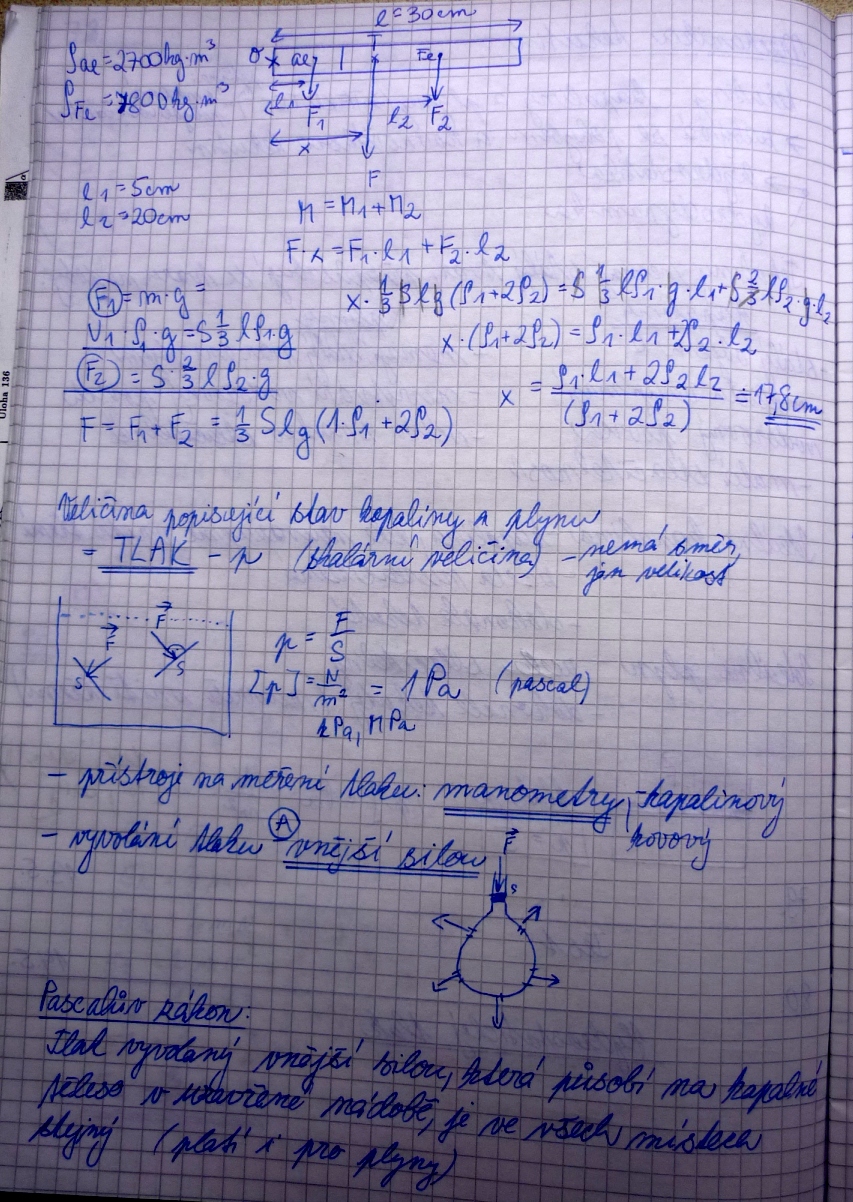 l = 30cm
ρae = 2700kg·m³
O x ae T Fe
ρFe = 7800kg·m³
l1 F1 l2 F2
x
F
l1 = 5cm
l2 = 20cm
M = M1 + M2
F·x = F1·l1 + F2·l2
F1 = m·g =
x·⅓Slg(ρ1+2ρ2) = S⅓lρ1·g·l1+S⅔lρ2·g·l2
V1·ρ1·g = S⅓lρ1·g
x·(ρ1+2ρ2) = ρ1·l1+2ρ2·l2
F2 = S·⅔lρ2·g
x = ρ1·l1+2ρ2l2 / (ρ1+2ρ2) = 17,8cm
F = F1+F2 = ⅓Slg(1·ρ1+2ρ2)
Úloha 136
Veličina popisující stav kapaliny a plynu
= TLAK – p (skalární veličina) – nemá směr,
jen velikost
F F S S
p = F/S
[p] = N/m² = 1Pa (pascal)
kPa, MPa
– přístroje na měření tlaku: manometry – kapalinový
kovový
– vyvolání tlaku A vnější silou
F
S
Pascalův zákon:
Tlak vyvolaný vnější silou, která působí na kapalné
těleso v uzavřené nádobě, je ve všech místech
stejný (platí i pro plyny)